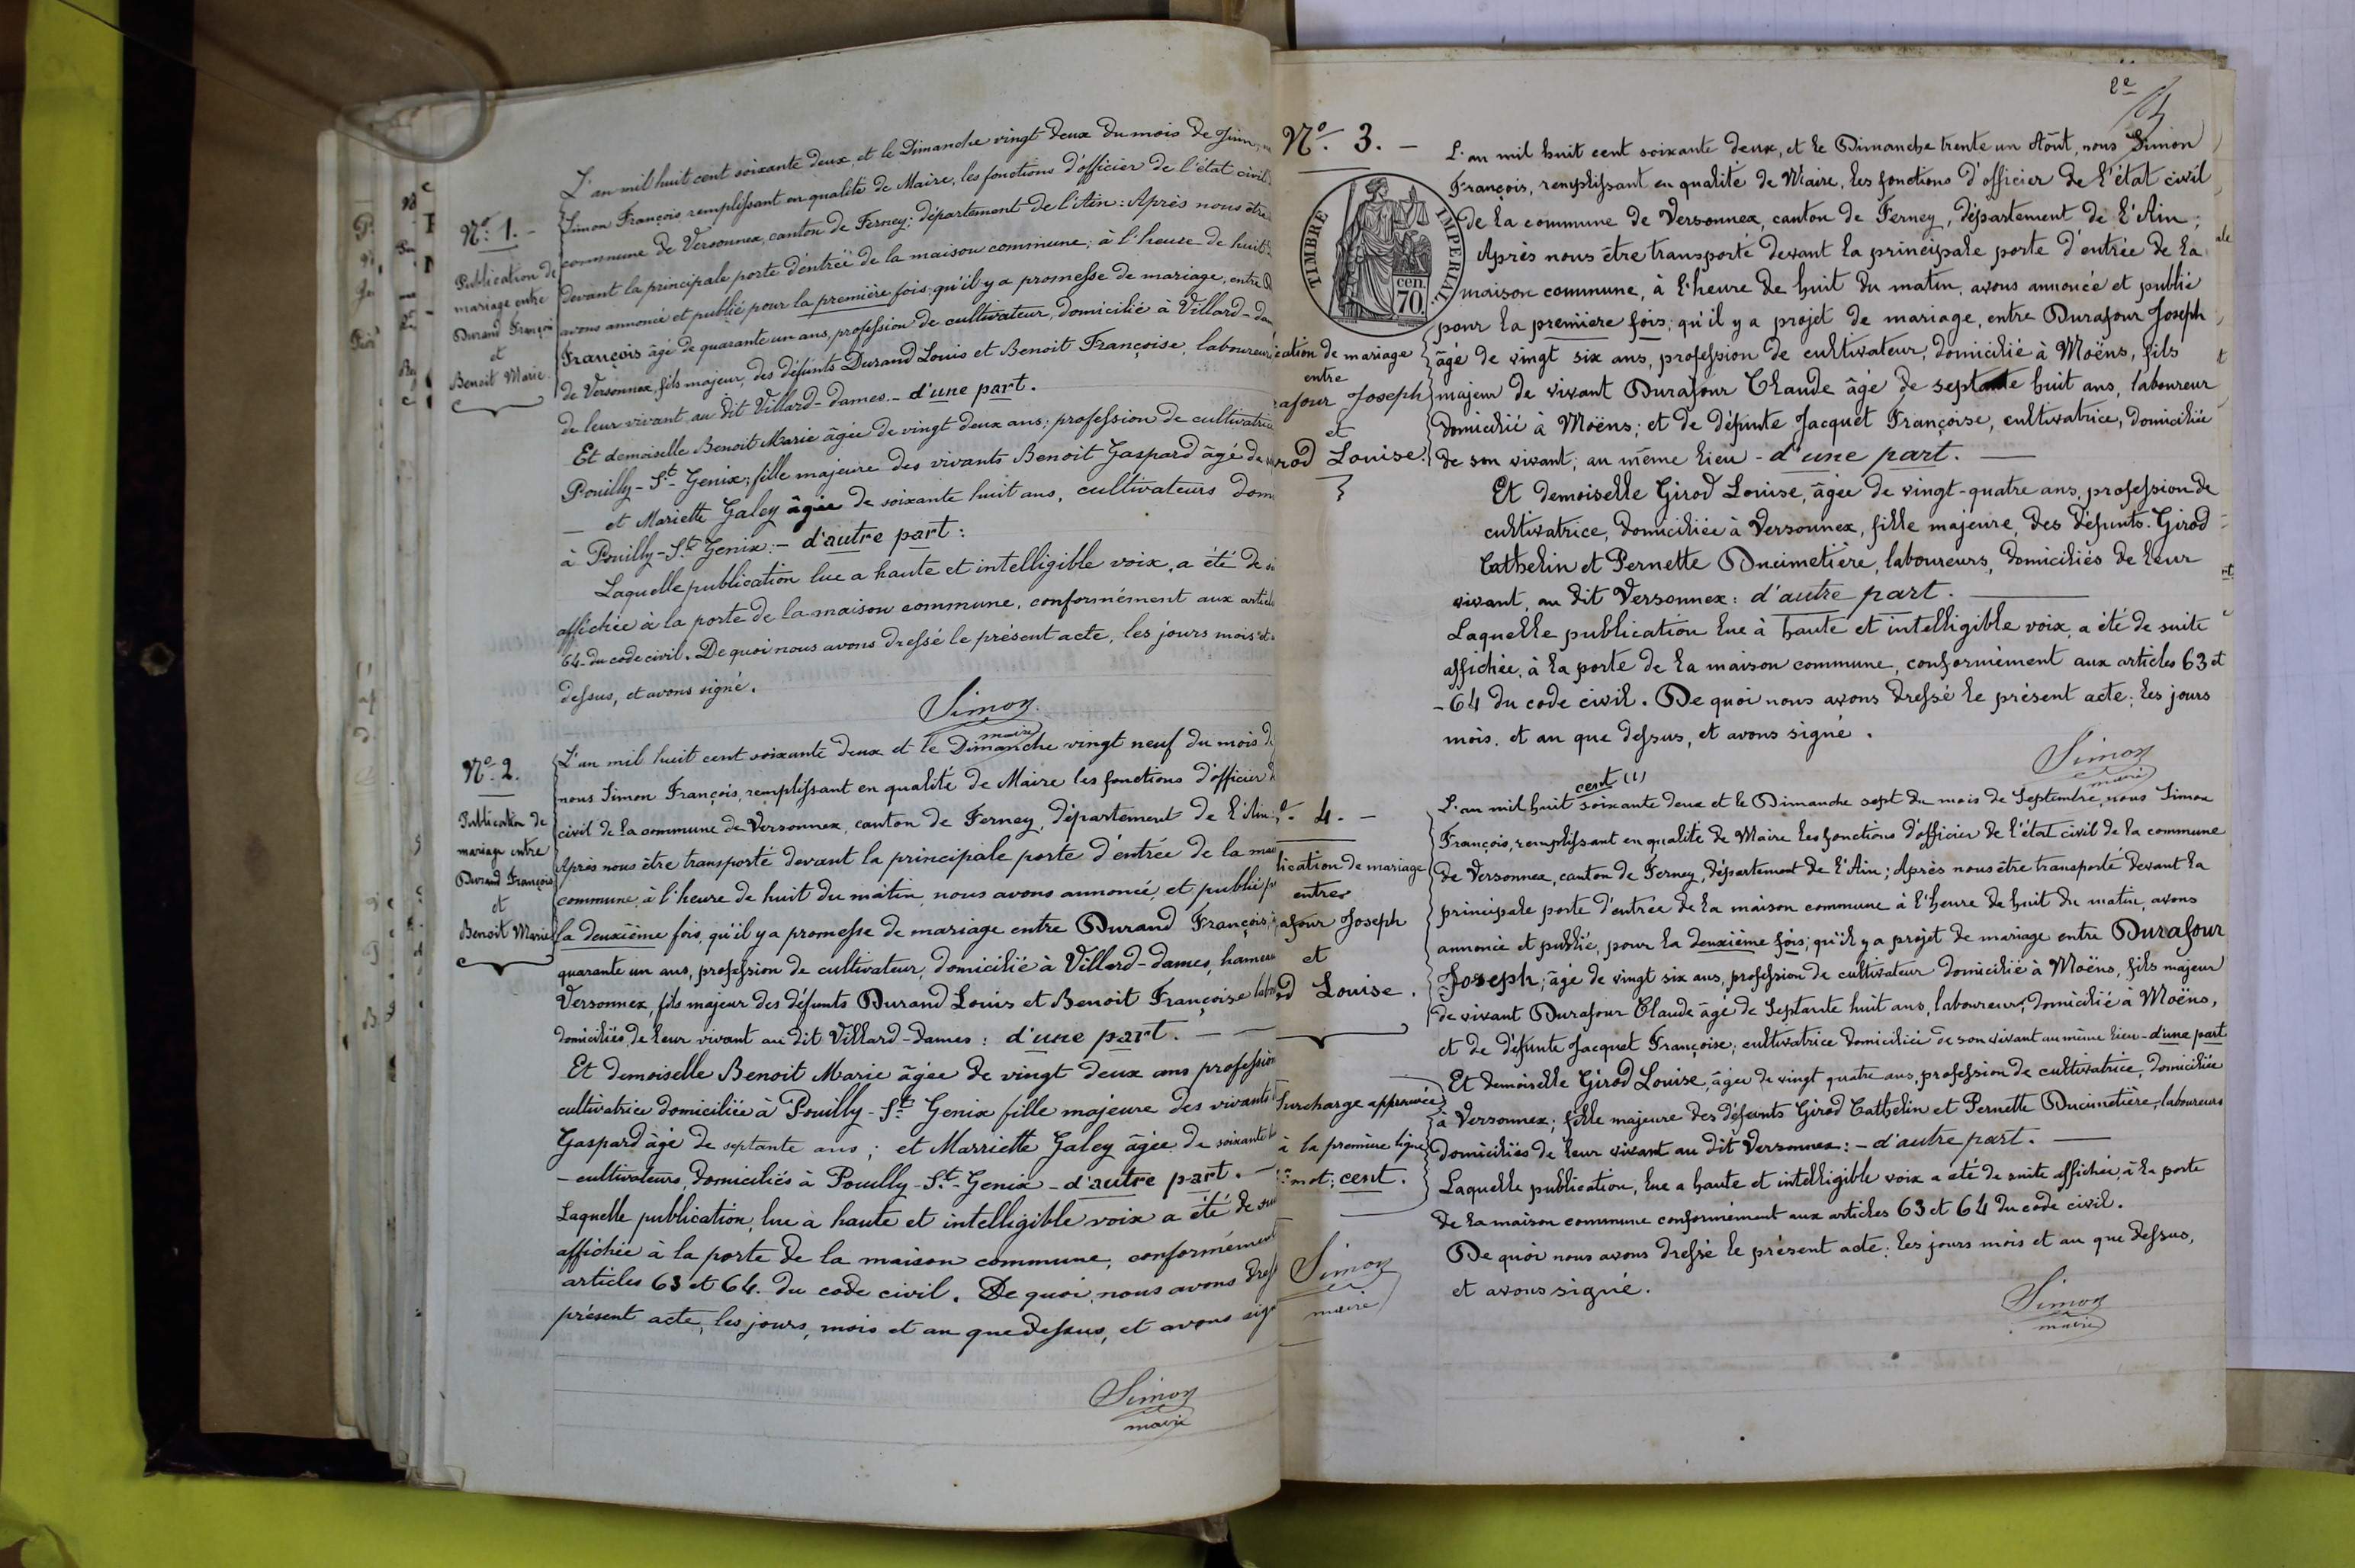 N.º 1. -
Publication de
mariage entre
Durand François
et
Benoit Marie.
L'an mil huit cent soixante deux, et le Dimanche vingt deux du mois de Juin,
Simon François remplissant en qualité de Maire, les fonctions d'officier de l'état civil
commune de Versonnex, canton de Ferney; département de l'Ain: Après nous être
devant la principale porte d'entrée de la maison commune, à l'heure de huit
avons annoncé et publié pour la première fois, qu'il y a promesse de mariage, entre
François âgé de quarante un ans, profession de cultivateur, domicilié à Villard-
de Versonnex, fils majeur, des défunts Durand Louis et Benoit Françoise, laboureurs
de leur vivant au dit Villard-dames. - d'une part.
Et demoiselle Benoit Marie âgée de vingt deux ans; profession de cultivatrice
Pouilly-St-Genix; fille majeure des vivants Benoit Gaspard âgé de
— et Mariette Galey âgée de soixante huit ans, cultivateurs
à Pouilly-St Genix: - d'autre part:
Laquelle publication lue a haute et intelligible voix, a été de
affichée à la porte de la maison commune, conformément aux
64 - du code civil. De quoi nous avons dressé le présent acte, les jours mois et
dessus, et avons signé.
Simon
maire
N.º 2.
Publication de
mariage entre
Durand François
et
Benoit Marie
L'an mil huit cent soixante deux et le Dimanche vingt neuf du mois
nous Simon François, remplissant en qualité de Maire les fonctions d'officier
civil de la commune de Versonnex, canton de Ferney, département de l'Ain:
Après nous être transporté devant la principale porte d'entrée de la
commune, à l'heure de huit du matin, nous avons annoncé, et publié
la deuxième fois, qu'il y a promesse de mariage entre Durand François,
quarante un ans, profession de cultivateur, domicilié à Villard-dames, hameau
Versonnex, fils majeur des défunts Durand Louis et Benoit Françoise
domiciliés, de leur vivant au dit Villard-dames: d'une part. — —
Et demoiselle Benoit Marie âgée de vingt deux ans profession
cultivatrice domiciliée à Pouilly-St Genix fille majeure des vivants
Gaspard âgé de septante ans; et Marriette Galey âgée de soixante
- cultivateurs, domiciliés à Pouilly-St-Genix - d'autre part. —
Laquelle publication, lue à haute et intelligible voix a été de
affichée à la porte de la maison commune, conformément
articles 63 et 64. du code civil. De quoi, nous avons
présent acte, les jours, mois et an que dessus, et avons
Simon
maire
2e
N.º 3. -
TIMBRE IMPÉRIAL
70 cen.
cation de mariage
entre
rafour Joseph
et
rod Louise.
L'an mil huit cent soixante deux, et le Dimanche trente un Aôut, nous Simon
François, remplissant en qualité de Maire, les fonctions d'officier de l'état civil
de la commune de Versonnex, canton de Ferney, département de l'Ain;
Après nous être transporté devant la principale porte d'entrée de la
maison commune, à l'heure de huit du matin, avons annoncé et publié
pour la première fois; qu'il y a projet de mariage, entre Durafour Joseph
âgé de vingt six ans, profession de cultivateur, domicilié à Moëns, fils
majeur de vivant Durafour Claude âgé de septante huit ans, laboureur
domicilié à Moëns; et de défunte Jacquet Françoise, cultivatrice, domiciliée
de son vivant; au même lieu - d'une part. —
Et demoiselle Girod Louise, âgée de vingt-quatre ans, profession de
cultivatrice, domiciliée à Versonnex, fille majeure, des défunts Girod
Cathelin et Pernette Ducimetière, laboureurs, domiciliés de leur
vivant, au dit Versonnex: d'autre part. —
Laquelle publication lue à haute et intelligible voix, a été de suite
affichée, à la porte de la maison commune, conformément aux articles 63 et
- 64 du code civil. De quoi nous avons dressé le présent acte; les jours
mois, et an que dessus, et avons signé.
Simon
maire
4. -
lication de mariage
entre
afour Joseph
et
d Louise.
cent (1)
L'an mil huit soixante deux et le Dimanche sept du mois de Septembre, nous Simon
François, remplissant en qualité de Maire les fonctions d'officier de l'état civil de la commune
de Versonnex, canton de Ferney, département de l'Ain; Après nous être transporté devant la
principale porte d'entrée de la maison commune à l'heure de huit du matin, avons
annoncé et publié, pour la deuxième fois; qu'il y a projet de mariage entre Durafour
Joseph, âgé de vingt six ans, profession de cultivateur domicilié à Moëns, fils majeur
de vivant Durafour Claude âgé de Septante huit ans, laboureur, domicilié à Moëns,
et de défunte Jacquet Françoise; cultivatrice domiciliée de son vivant au même lieu - d'une part
Et demoiselle Girod Louise, âgée de vingt quatre ans, profession de cultivatrice, domiciliée
à Versonnex; fille majeure des défunts Girod Cathelin et Pernette Ducimetière, laboureurs
domiciliés de leur vivant au dit Versonnex: - d'autre part. —
Laquelle publication, lue a haute et intelligible voix a été de suite affichée, à la porte
de la maison commune conformément aux articles 63 et 64 du code civil.
De quoi nous avons dressé le présent acte; les jours mois et an que dessus,
et avons signé.
Simon
maire
Surcharge approuvée
à la première ligne
mot; cent.
Simon
maire